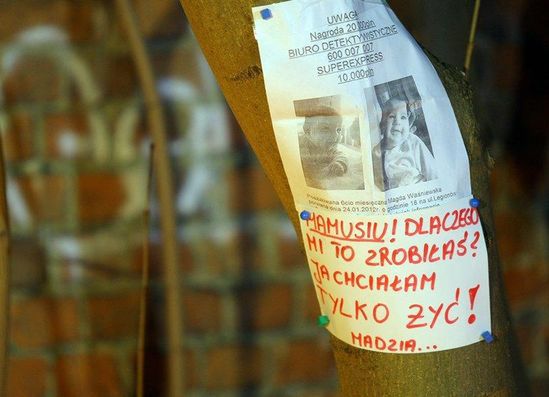 UWAGA!
Nagroda 20.000pln
BIURO DETEKTYWISTYCZNE
600 007 007
SUPEREXPRESS
10.000pln
miesięczna Magda Waśniewska
dnia 24.01.2012r. o godzinie 18 na ul Legionów
MAMUSIU! DLACZEGO
MI TO ZROBIŁAŚ?
JA CHCIAŁAM
TYLKO ŻYĆ!
MADZIA...